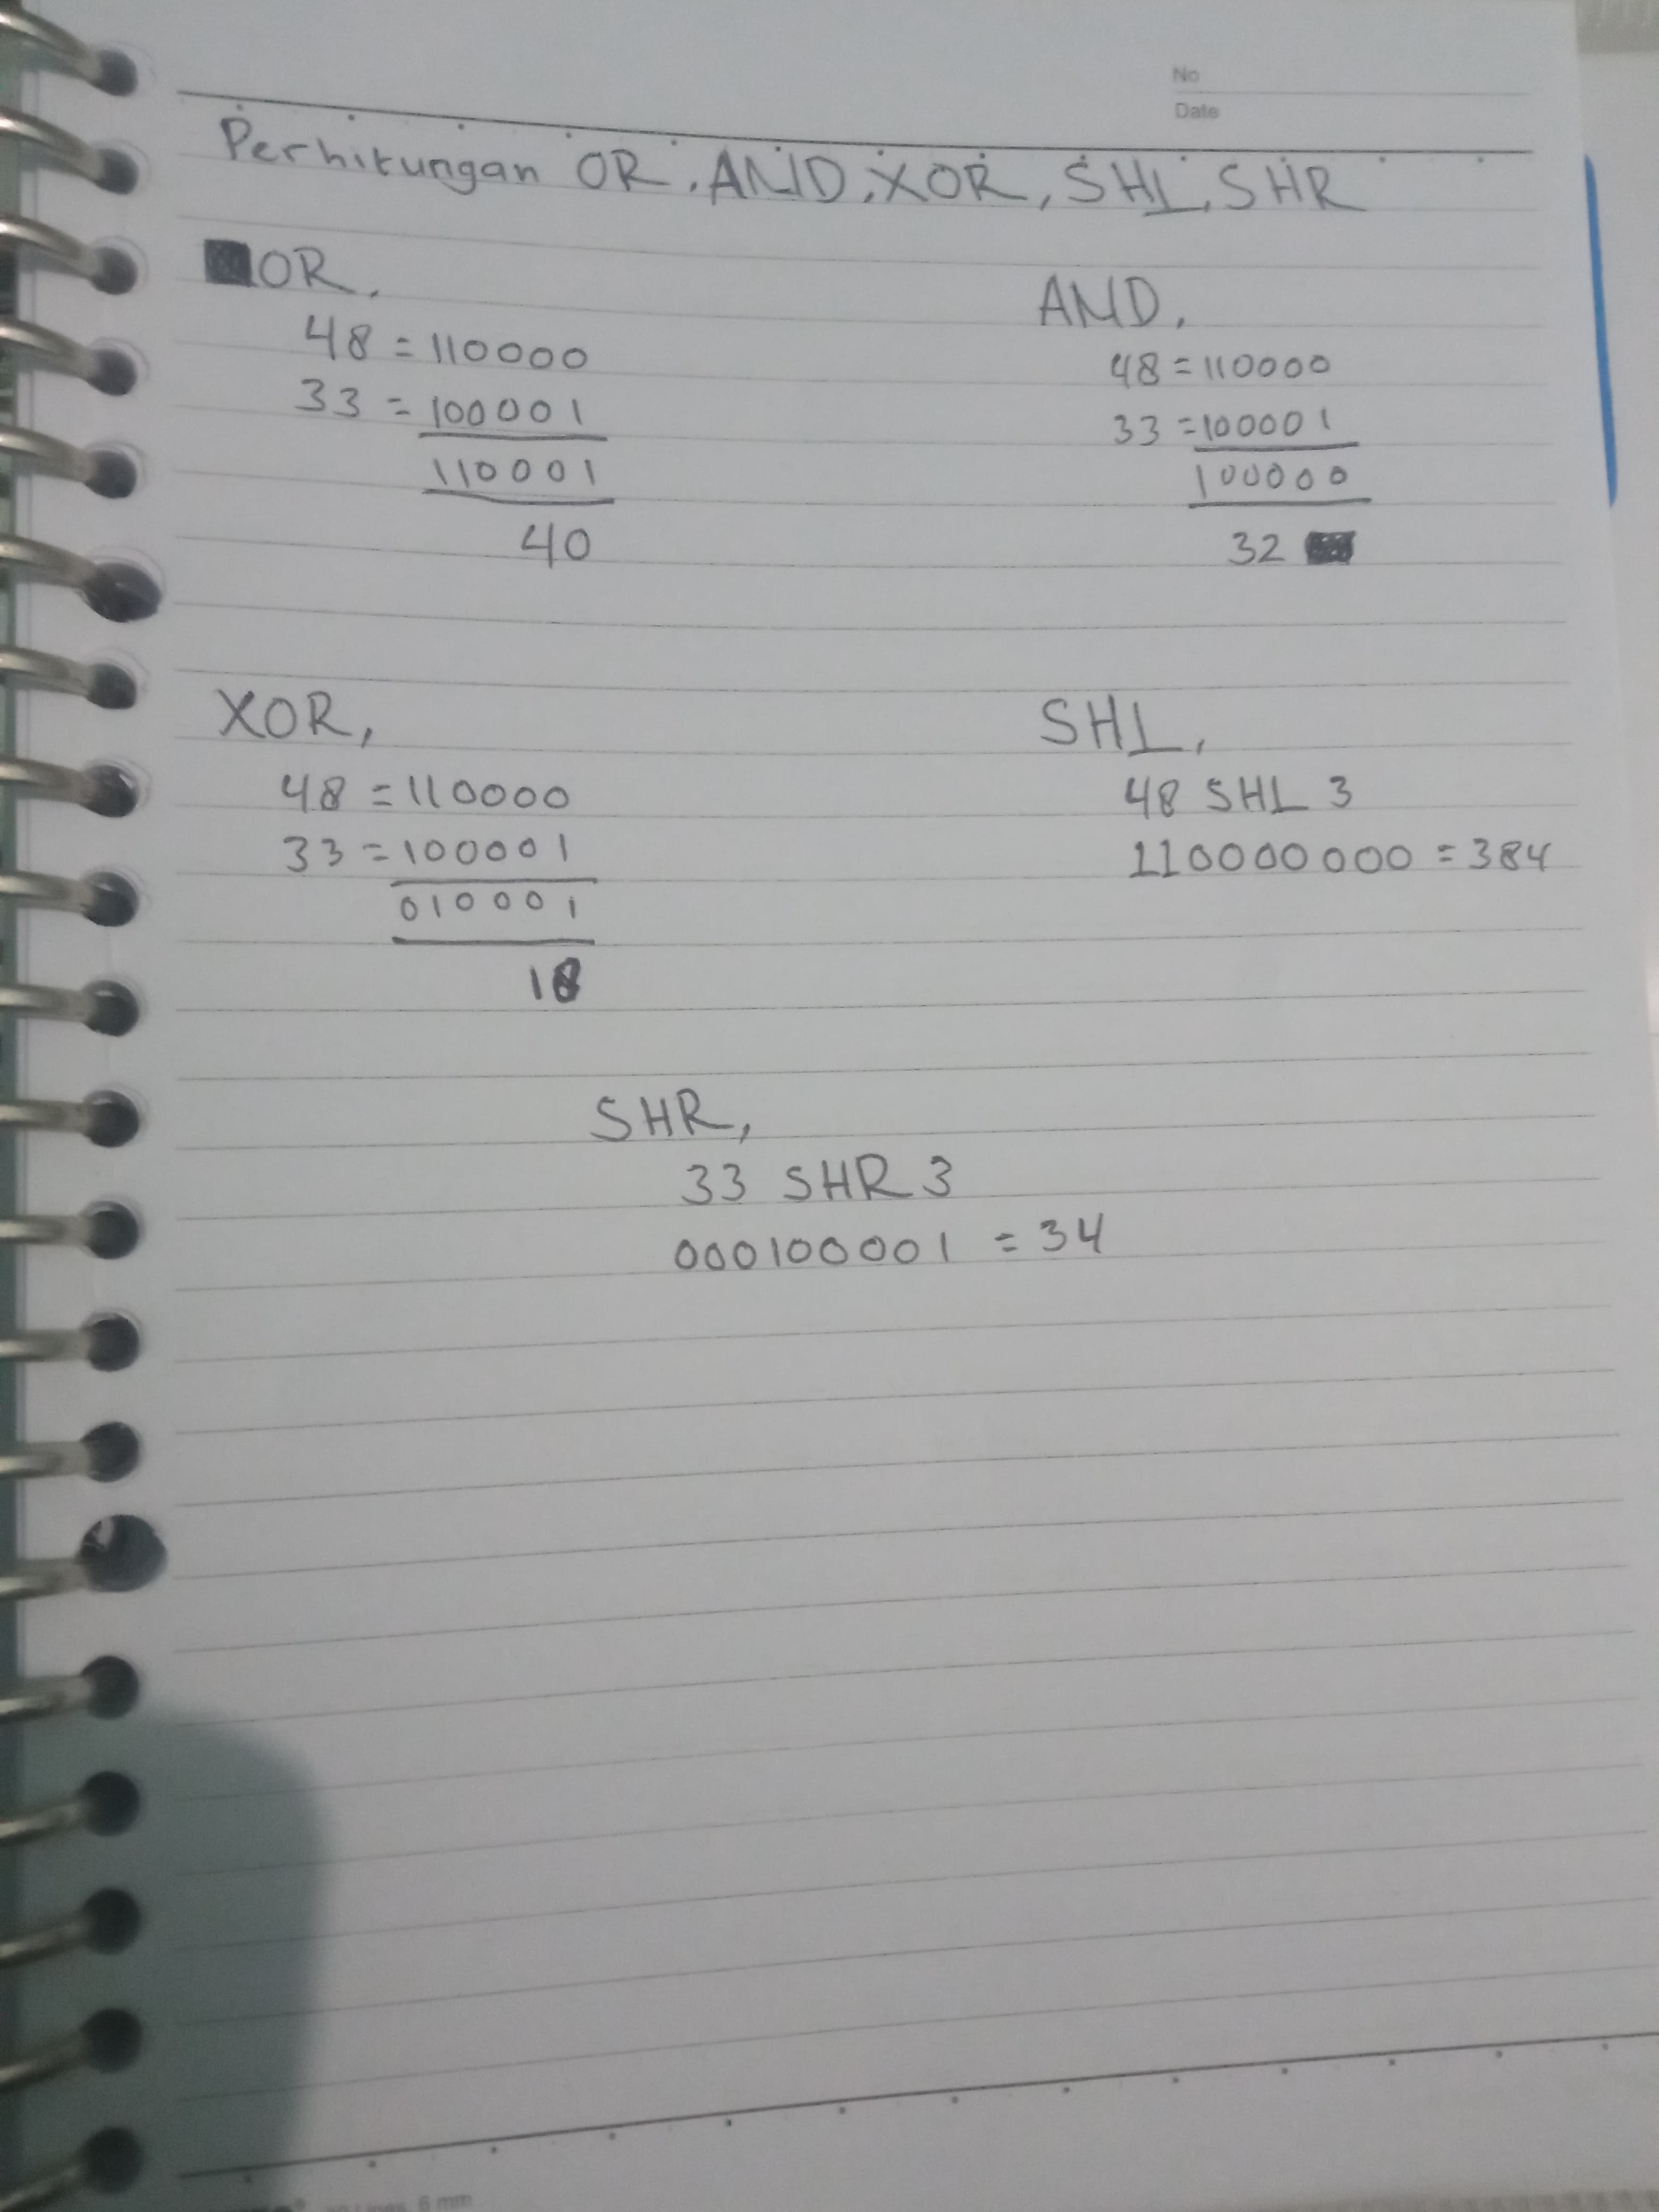 No
Date
Perhitungan OR, AND, XOR, SHL, SHR
OR,
48 = 110000
33 = 100001
110001
40
AND,
48 = 110000
33 = 100001
100000
32
XOR,
48 = 110000
33 = 100001
010001
18
SHL,
48 SHL 3
110000000 = 384
SHR,
33 SHR 3
000100001 = 34
Lines, 6 mm